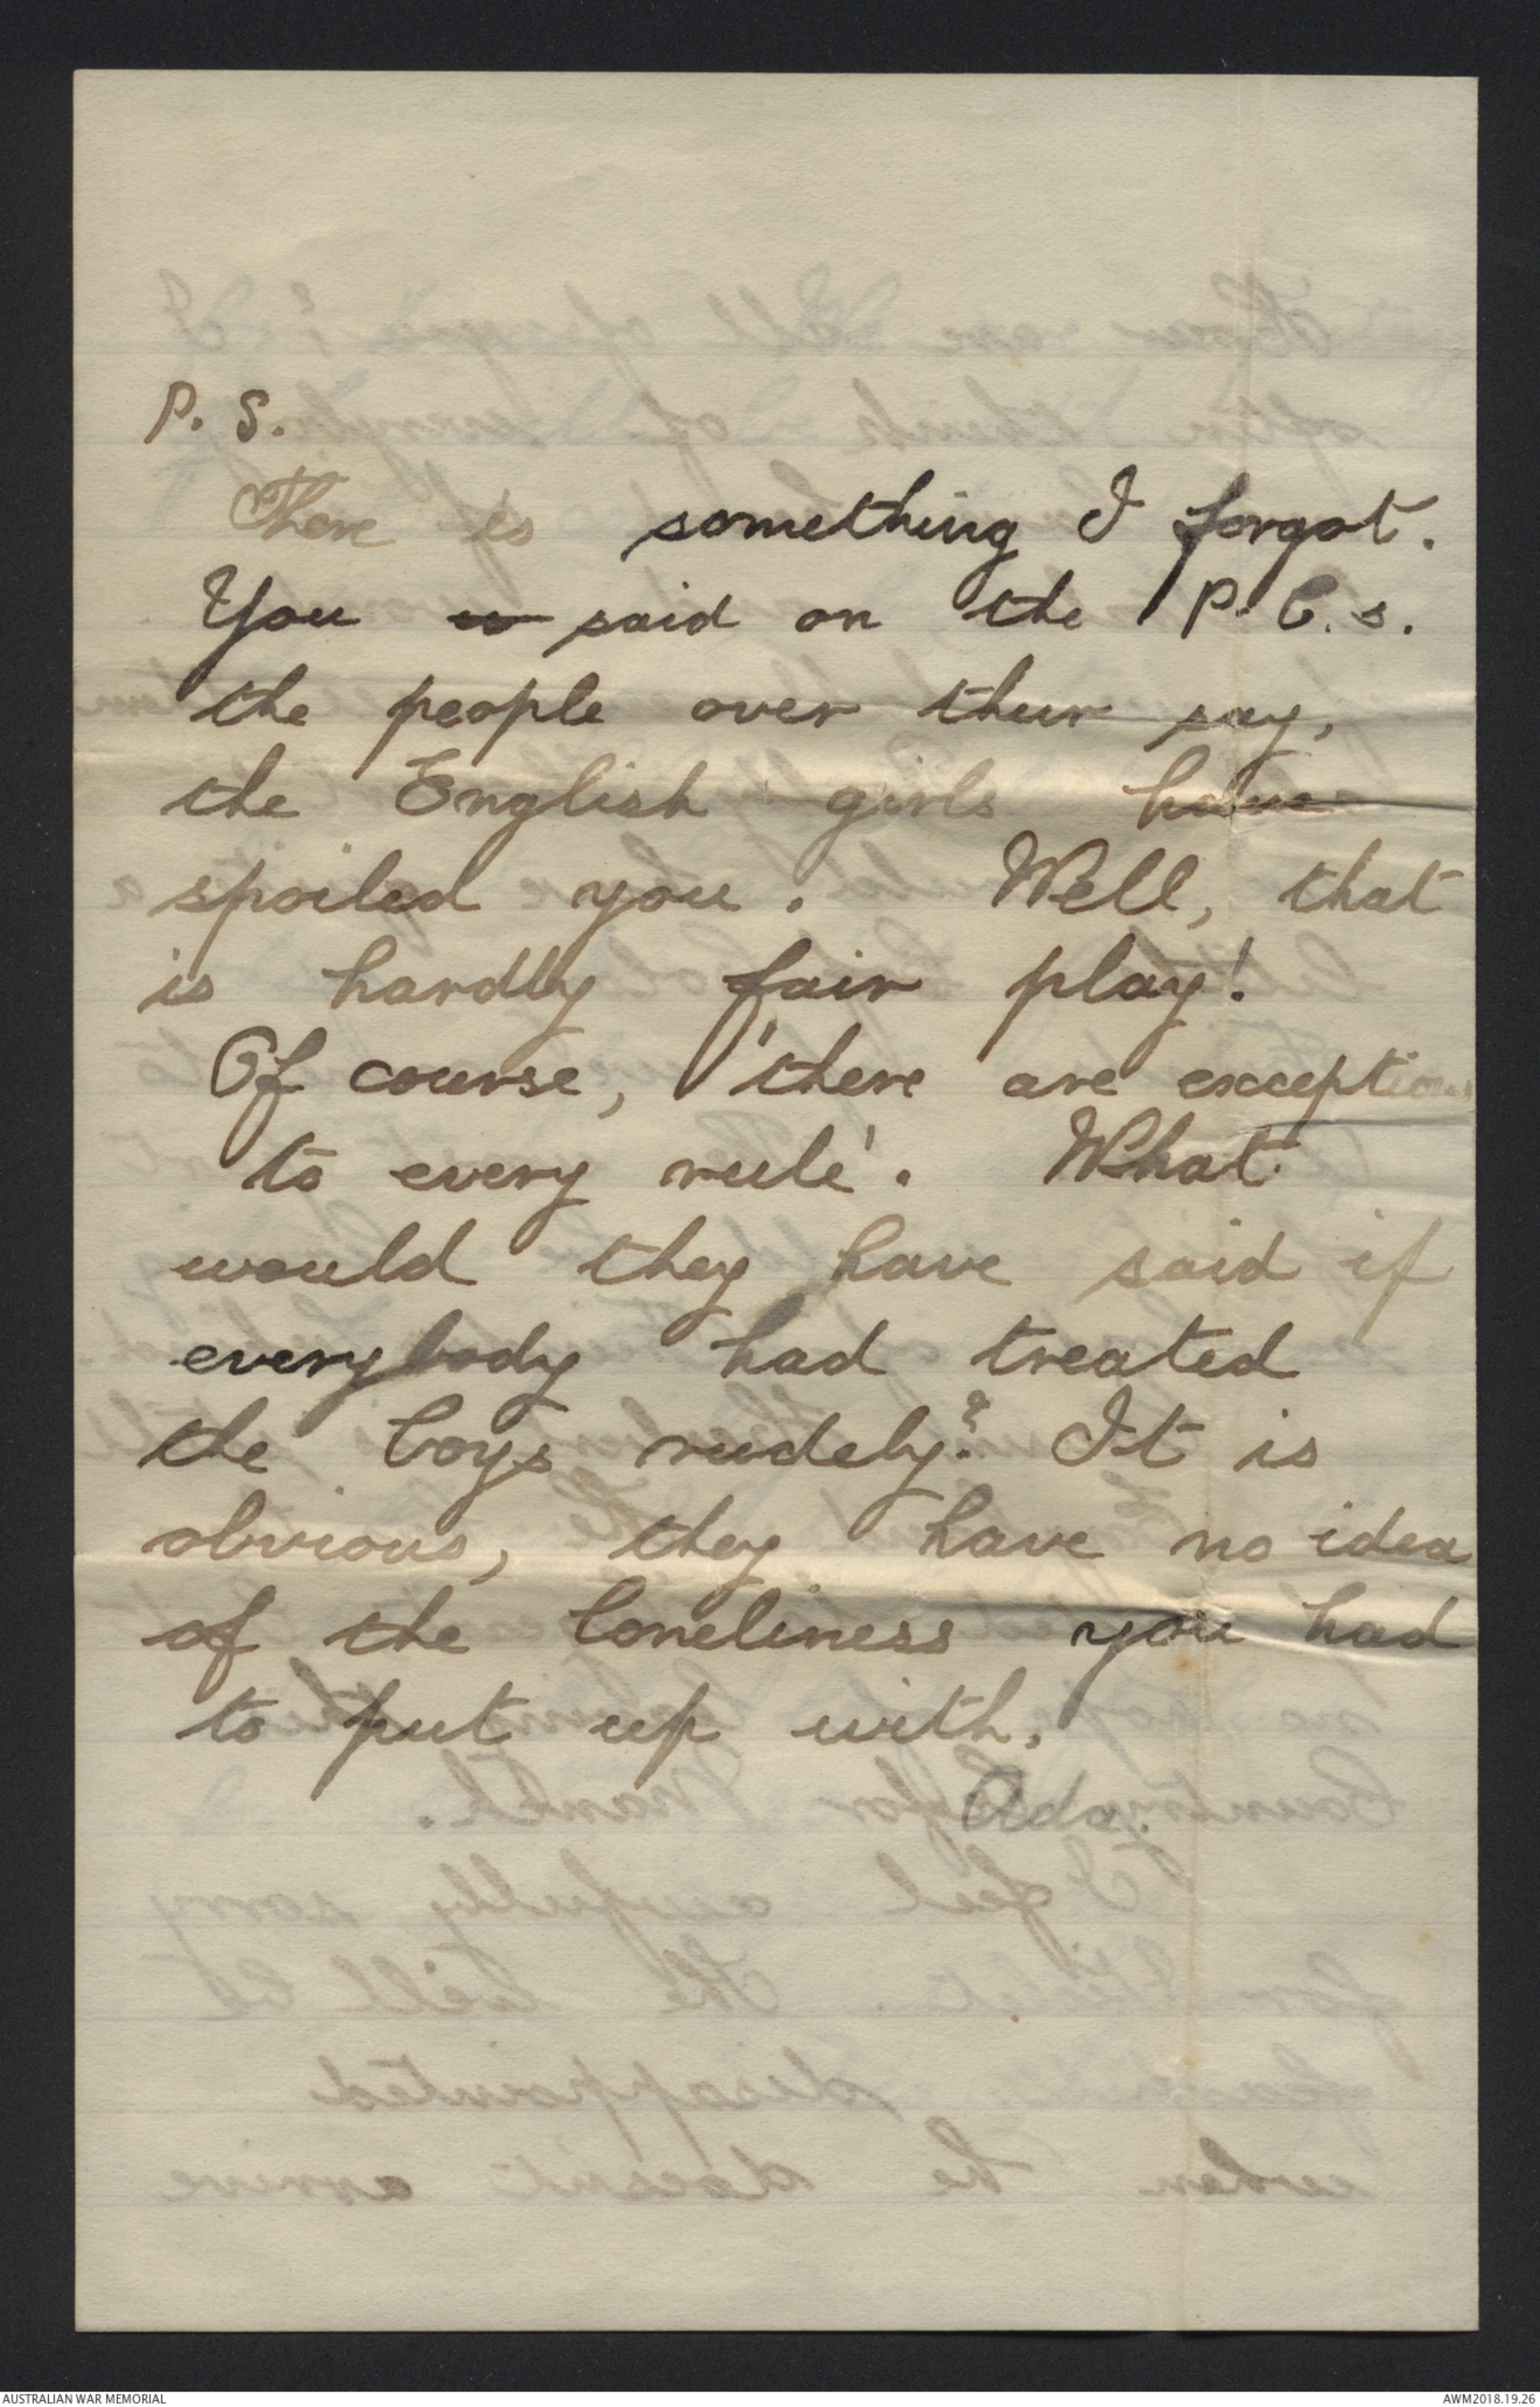 P. S.
There is something I forgot.
You said on the P. C. s.
the people over their say,
the English girls have
spoiled you. Well, that
is hardly fair play!
Of course, 'there are exceptions
to every rule'. What
would they have said if
everybody had treated
the boys rudely? It is
obvious, they have no idea
of the loneliness you had
to put up with.
Ada.
AUSTRALIAN WAR MEMORIAL
AWM2018.19.26